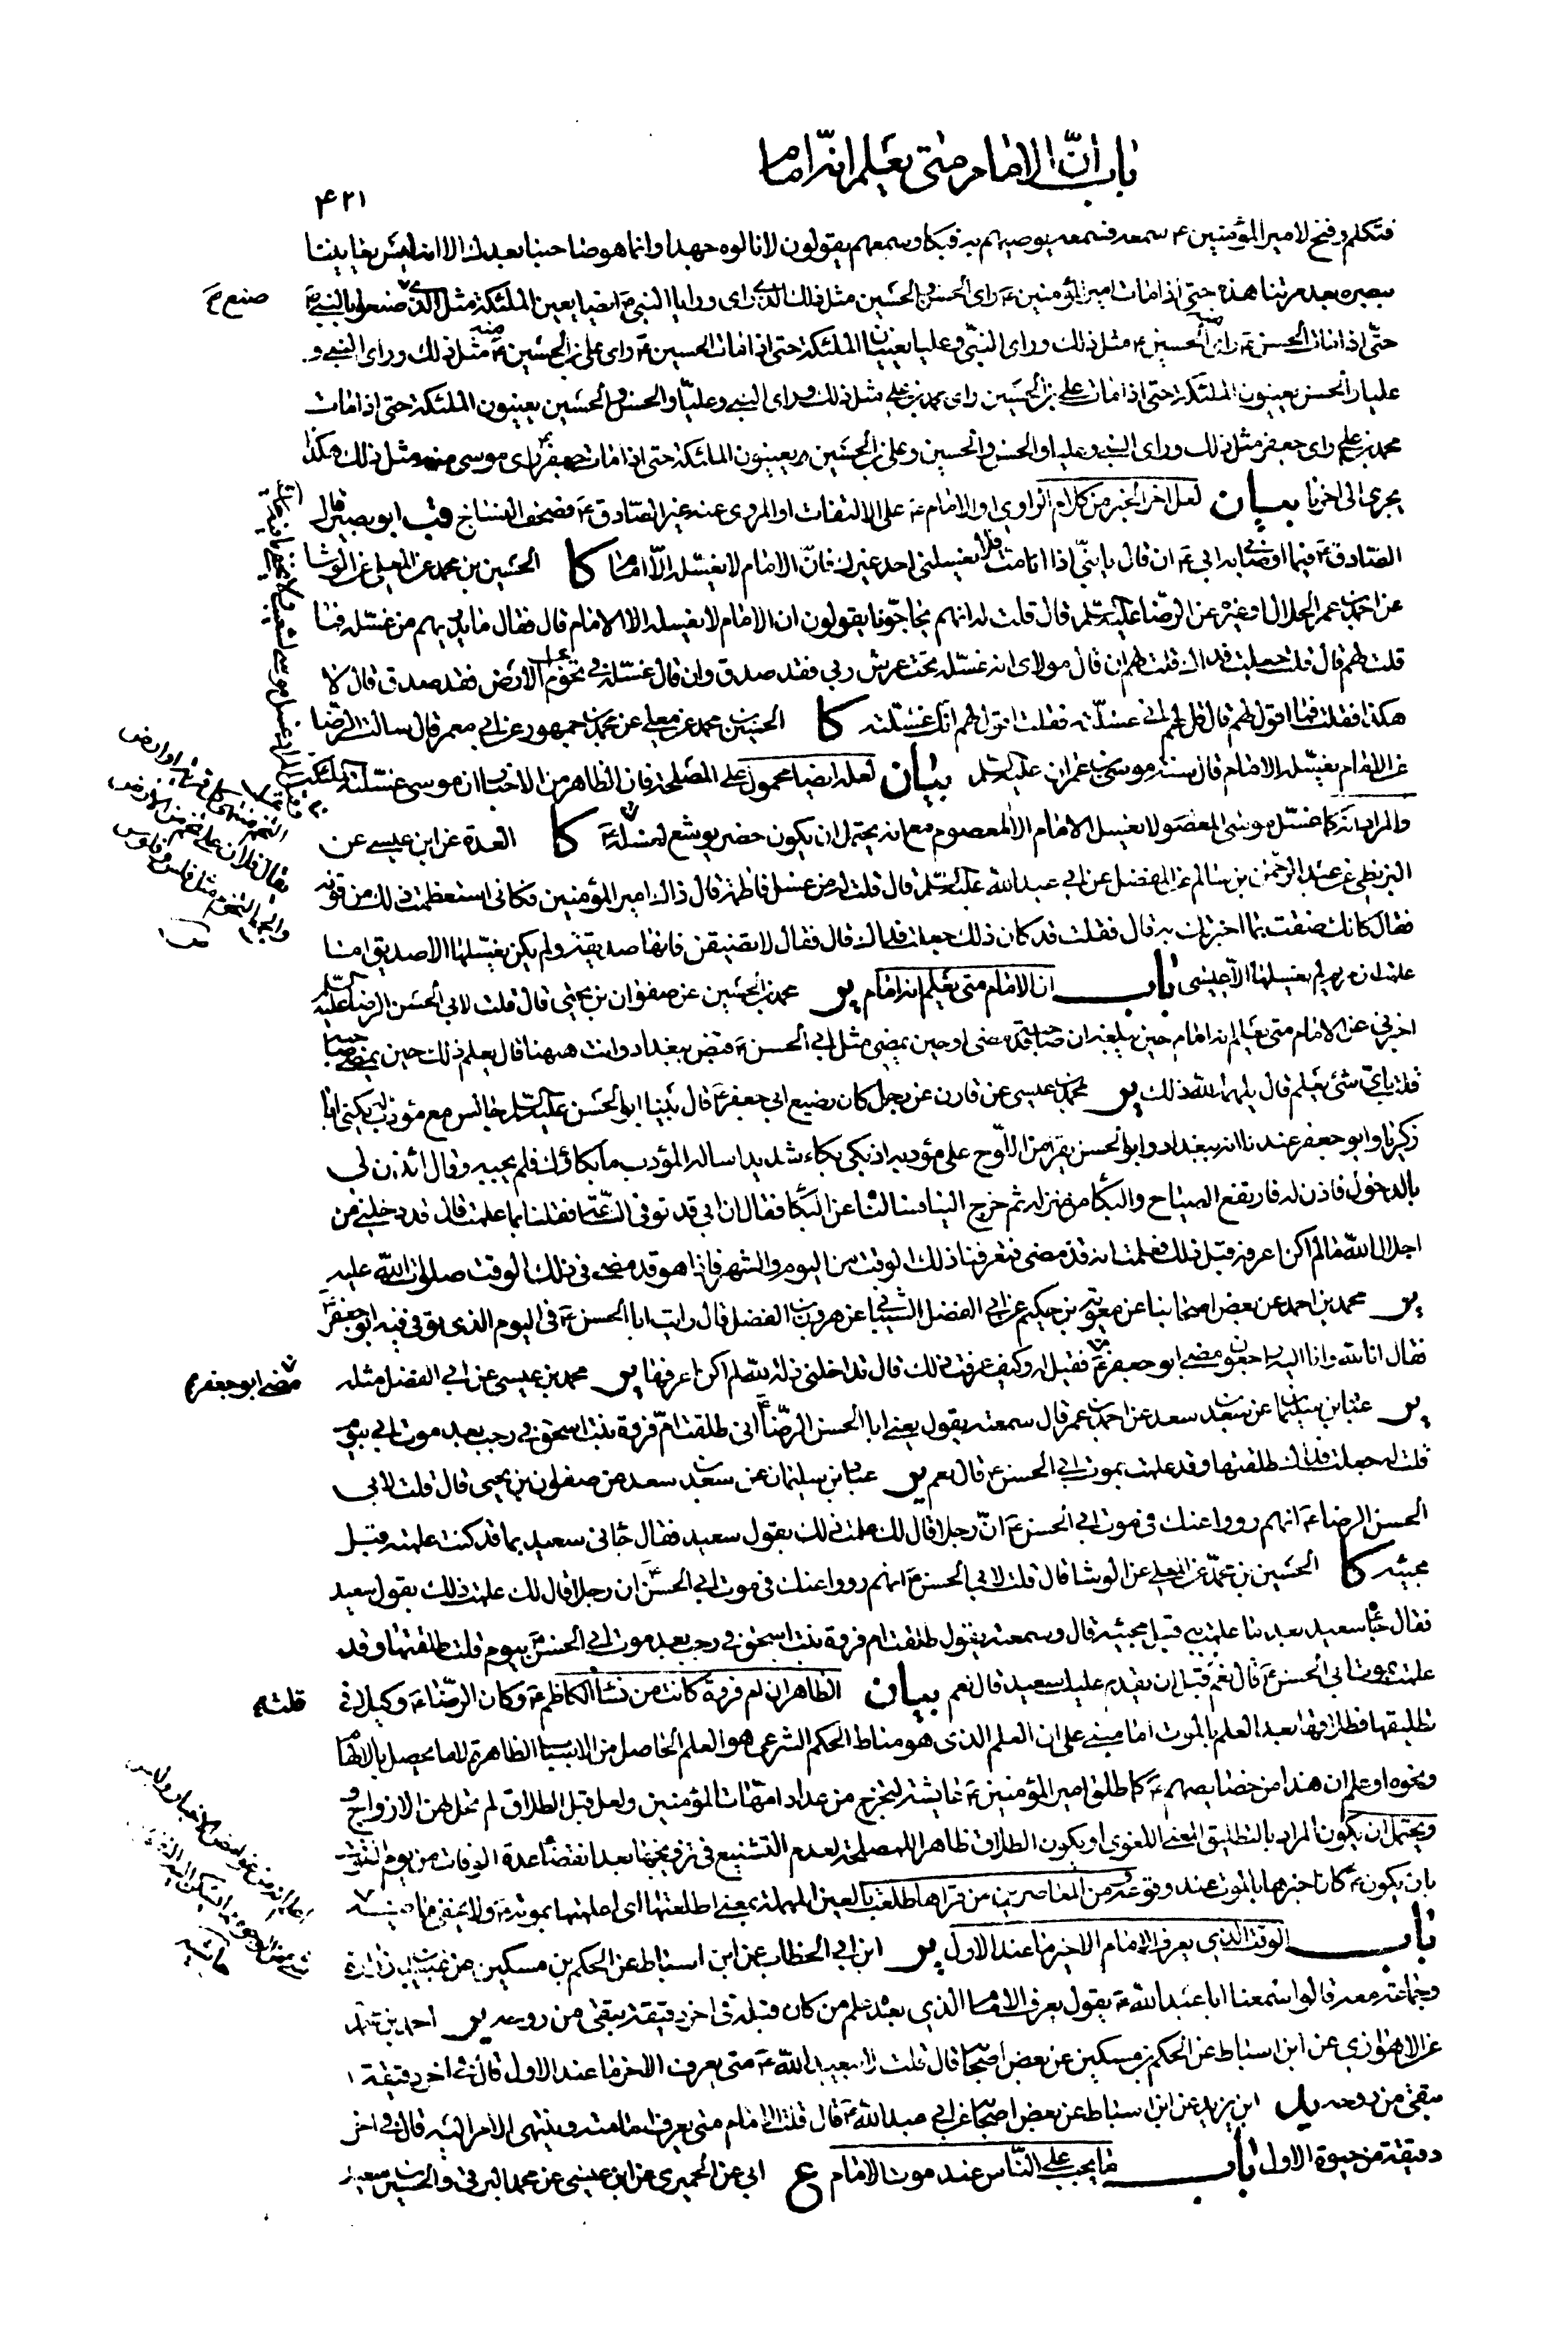 باب أنّ الامام متى يعلم انه امام
۴۲۱
فتكلم وفتح لامير المؤمنين ع سمعه فسمعه يوصيهم به فبكا وسمعهم يقولون لا نالوه جهدا وانما هو صاحبنا بعدك الا انه ليس يعايننا
ببصره بعد مرتنا هذه حتى اذا مات امير المؤمنين ع راى الحسن والحسين مثل ذلك الذي راى ورايا النبي ص ايضا يعين الملئكة مثل الذى صنعوا بالنبي ص
صنع
حتّى اذا مات الحسن ع راى منه الحسين ع مثل ذلك وراى النبّي وعليا يعينان الملئكة حتى اذا مات الحسين ع راى علي بن الحسين ع منه مثل ذلك وراى النبي و
عليا والحسن يعينون الملئكة حتى اذا مات علي بن الحسين راى محمد بن علي مثل ذلك وراى النبي وعليّا والحسن والحسين يعينون الملئكة حتى اذا مات
محمد بن علي راى جعفر مثل ذلك وراى النبي وعليا والحسن والحسين وعلي بن الحسين يعينون الملئكة حتى اذا مات جعفر راى موسى منه مثل ذلك هكذا
يجرى الى اخرنا بيان لعل اخر الخبر من كلام الراوي او الامام ع على الالتفات او المروى عنه غير الصّادق ع فصحف النساخ قب ابو بصير قال
الصادق ع فيما اوصاني به ابي ع ان قال يا بنيّ اذا انا مت فلا يغسلني احد غيرك فانّ الامام لا يغسّله الّا امام كا الحسين بن محمد عن المعلى عن الوشا
عن احمد بن عمر الحلال او غيره عن الرضّا عليه السّلم قال قلت له انهم يحاجّونا يقولون ان الامام لا يغسله الا الامام قال فقال ما يدريهم من غسّله فما
قلت لهم قال قلت جعلت فداك قلت لهم ان قال مولاى انه غسّله تحت عرش ربي فقد صدق وان قال غسّله في تخوم الارض فقد صدق قال لا
هكذا فقلت فما اقول لهم قال قل لهم اني غسّلته فقلت اقول لهم انّك غسّلته كا الحسين بن محمد عن معلى عن محمد بن جمهور عن ابي معمر قال سالت الرضّا
عن الامام يغسّله الامام قال سنة موسى بن عمران عليه السلم بيان لعله ايضا محمول على المصلحة فان الظاهر من الاخبار ان موسى غسّلته الملئكة
والمراد انه كما غسّل موسى المعصوم لا يغسل الامام الا المعصوم مع انه يحتمل ان يكون حضر يوشع لغسله ع كا العدة عن ابن عيسى عن
البزنطي عن عبد الرّحمن بن سالم عن المفضل عن ابي عبد الله عليه السّلم قال قلت له من غسل فاطمة قال ذاك امير المؤمنين فكاني استعظمت ذلك من قوله
فقال كانك ضقت بما اخبرتك به قال فقلت قد كان ذلك جعلت فداك قال فقال لا تضيقن فانها صديقة ولم يكن يغسّلها الا صديق اما
علمت ان مريم لم يغسلها الّا عيسى باب ان الامام متى يعلم انه امام ير محمد بن الحسين عن صفوان بن يحيى قال قلت لابي الحسن الرضا عليه السّلم
اخبرني عن الامام متى يعلم انه امام حين يبلغه ان صاحبه قد مضى او حين يمضي مثل ابي الحسن ع قبض ببغداد وانت ههنا قال يعلم ذلك حين يمضي صاحبه
قلت بايّ شئ يعلم قال يلهمه اللّه ذلك ير محمد بن عيسى عن قارن عن رجل كان رضيع ابي جعفر ع قال بينا ابو الحسن عليه السّلم جالس مع مؤدب له يكنى ابا
زكريا وابو جعفر عندنا انه ببغداد وابو الحسن يقرء من اللّوح على مؤدبه اذ بكى بكاء شديدا ساله المؤدب ما بكاؤك فلم يجيبه وقال ائذن لي
بالدخول فاذن له فارتفع الصياح والبكا من منزله ثم خرج الينا فسالنا عن البكا فقال ان ابي قد توفى السّاعة فقلنا بما علمت قال قد دخلني من
اجلال اللّه مالم اكن اعرفه قبل ذلك فعلمت انه قد مضى فتعرفنا ذلك الوقت من اليوم والشهر فاذا هو قد مضى في ذلك الوقت صلوات اللّه عليه
ير محمد بن احمد عن بعض اصحابنا عن معوية بن حكيم عن ابي الفضل الشيباني عن هرون بن الفضل قال رايت ابا الحسن ع فى اليوم الذى توفي فيه ابو جعفر ع
فقال انا لله وانا اليه راجعون مضى ابو جعفر ع فقيل له وكيف عرفت ذلك قال تداخلني ذلة للّه لم اكن اعرفها ير محمد بن عيسى عن ابي الفضل مثله
مضى ابو جعفر ع
ير عباد بن سليمان عن سعد بن سعد عن احمد بن عمر قال سمعته يقول يعني ابا الحسن الرضّا ع اني طلقت امّ فروة بنت اسحق في رجب بعد موت ابي بيوم
قلت له جعلت فداك طلقتها وقد علمت بموت ابي الحسن ع قال نعم ير عباد بن سليمان عن سعد بن سعد عن صفوان بن يحيى قال قلت لابي
الحسن الرضا ع انهم رووا عنك فى موت ابي الحسن ع انّ رجلا قال لك علمت ذلك بقول سعيد فقال جاءنى سعيد بما قد كنت علمته قبل
مجيئه كا الحسين بن محمّد عن المعلى عن الوشا قال قلت لابي الحسن ع انهم رووا عنك فى موت ابي الحسن ع ان رجلا قال لك علمت ذلك بقول سعيد
فقال جاء سعيد بعد ما علمت به قبل مجيئه قال وسمعته يقول طلقت ام فروة بنت اسحق فى رجب بعد موت ابي الحسن ع بيوم قلت طلقتها وقد
علمت بموت ابي الحسن ع قال نعم قبل ان يقدم عليك سعيد قال نعم بيان الظاهر ان ام فروة كانت من نساء الكاظم ع وكان الرضّا ع وكيلا فى
قلت
تطليقها فطلاقها بعد العلم بالموت اما مبني على ان العلم الذى هو مناط الحكم الشرعى هو العلم الحاصل من الاسباب الظاهرة لا ما يحصل بالالهام
ونحوه او علم ان هذا من خصايصهم ع كما طلق امير المؤمنين ع عايشة لتخرج من عداد امهات المؤمنين ولعل قبل الطلاق لم تحل لهن الازواج و
ويحتمل ان يكون المراد بالتطليق المعنى اللغوى او يكون الطلاق ظاهرا للمصلحة لعدم التشنيع فى تزويجها بعد انقضاء عدة الوفات من يوم الفوت
بان يكون ع كان اخبرها بالموت عند وقوعه ومن المعاصرين من قراها طلعت بالعين المهملة بمعنى اطلعتها اى اعلمتها بموته ع ولا يخفى ما فيه
باب الوقت الذي يعرف الامام الاخير ما عند الاول ير ابن ابي الخطاب عن ابن اسباط عن الحكم بن مسكين عن عبيد بن زرارة
وجماعة معه قالوا سمعنا ابا عبد اللّه ع يقول يعرف الامام الذي بعده علم من كان قبله فى اخر دقيقة تبقى من روحه ير احمد بن محمد
عن الاهوازي عن ابن اسباط عن الحكم بن مسكين عن بعض اصحابنا قال قلت لابي عبد اللّه ع متى يعرف الاخر ما عند الاول قال في اخر دقيقة
تبقى من روحه ير ابن يزيد عن ابن اسباط عن بعض اصحابنا عن ابي عبد اللّه ع قال قلت الامام متى يعرف امامته وينتهى الامر اليه قال في اخر
دقيقة من حيوة الاول باب ما يجب على النّاس عند موت الامام ع ابي عن الحميري عن ابن عيسى عن محمد البرقي والحسين بن سعيد